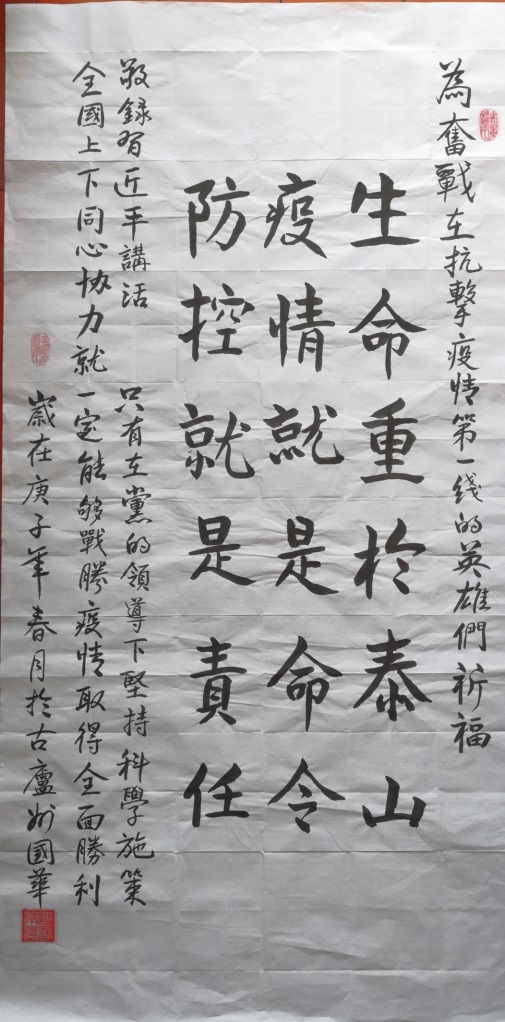 為奮戰在抗擊疫情第一线的英雄們祈福
生命重於泰山
疫情就是命令
防控就是責任
敬録習近平講話 只有在黨的領導下堅持科學施策
全國上下同心协力就一定能够戰勝疫情取得全面勝利
嵗在庚子年春月於古廬州國華